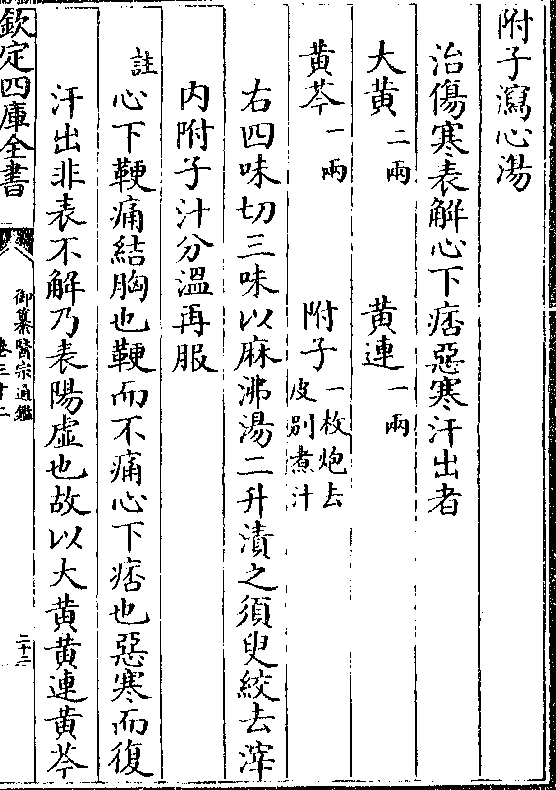 附子瀉心湯
治傷寒表解心下痞惡寒汗出者
大黄二兩 黄連一兩
黄芩一兩 附子一枚炮去皮别煮汁
右四味切三味以麻沸湯二升漬之須臾絞去滓
内附子汁分温再服
註心下鞕痛結胸也鞕而不痛心下痞也惡寒而復
汗出非表不解乃表陽虚也故以大黄黄連黄芩
欽定四庫全書
御纂醫宗通鑑
卷三十二
二十二